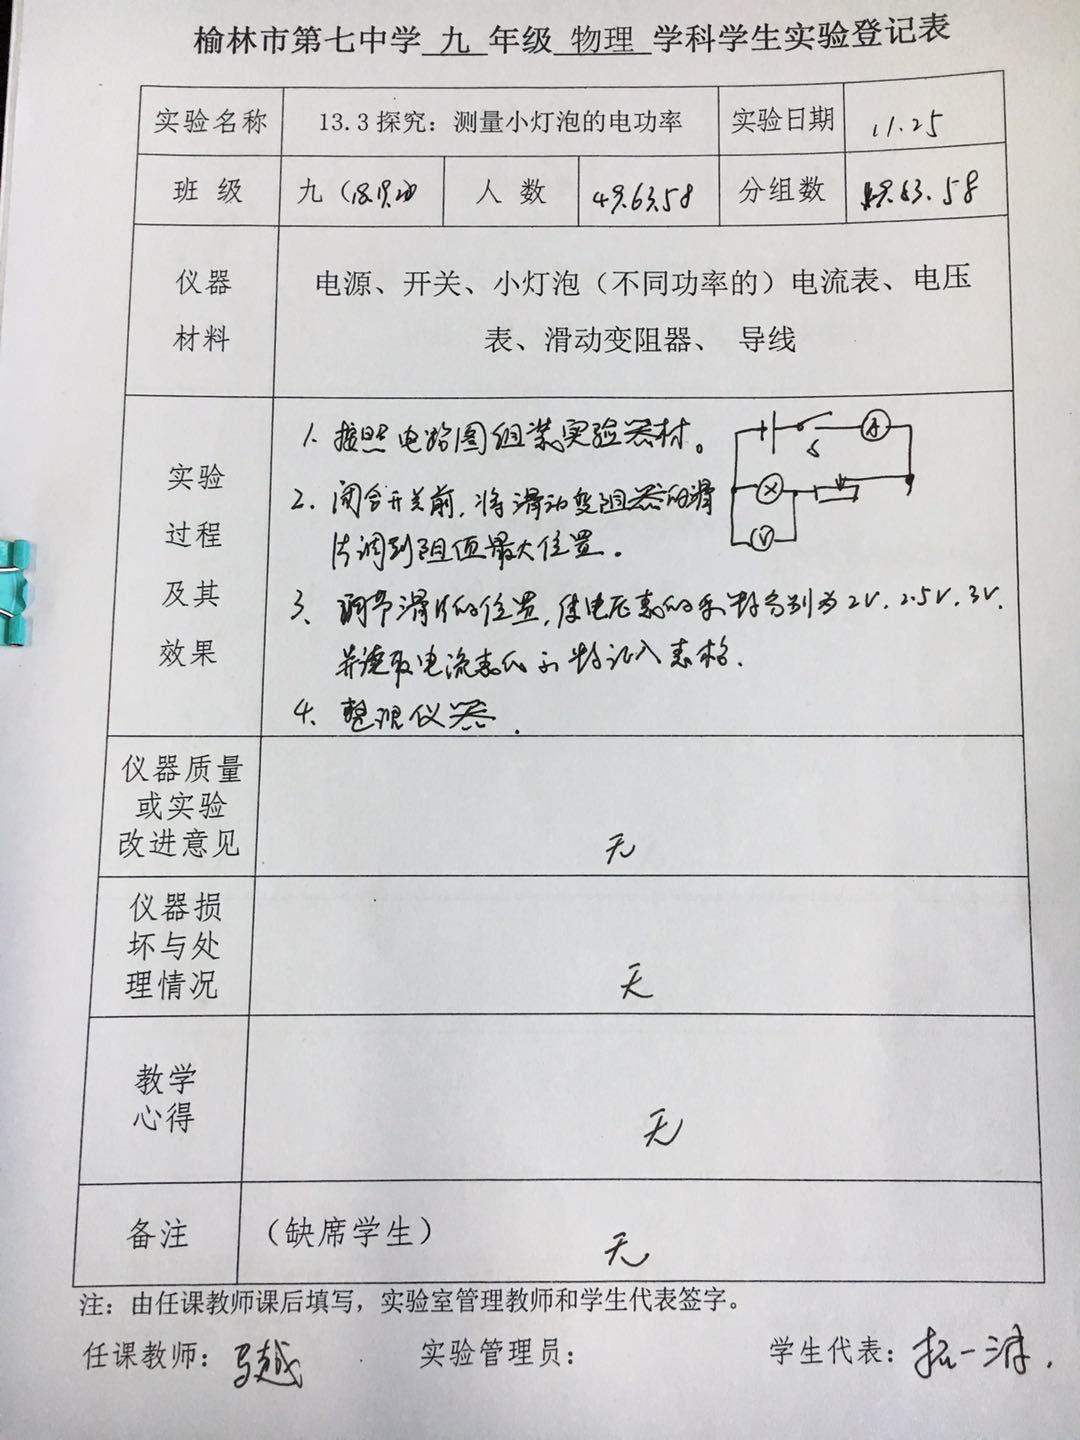 榆林市第七中学 九 年级 物理 学科学生实验登记表
实验名称 13.3 探究：测量小灯泡的电功率 实验日期 11.25
班 级 九（18.19.20 人 数 49.63.58 分组数 49.63.58
仪器
材料
电源、开关、小灯泡（不同功率的）电流表、电压
表、滑动变阻器、 导线
实验
过程
及其
效果
1、按照电路图组装实验器材。
2、闭合开关前，将滑动变阻器的滑
片调到阻值最大位置。
3、调节滑片的位置，使电压表的示数分别为2V、2.5V、3V，
并读取电流表的示数记入表格.
4、整理仪器.
S
A
V
仪器质量
或实验
改进意见
无
仪器损
坏与处
理情况
无
教学
心得
无
备注 （缺席学生） 无
注：由任课教师课后填写，实验室管理教师和学生代表签字。
任课教师：马越 实验管理员： 学生代表：